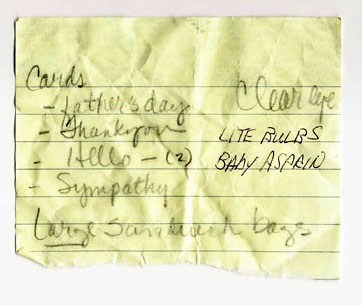 Cards
- Father's day
- Thankyou
- Hello - (2)
- Sympathy
Large Sandwich bags
Clear eye
LITE BULBS
BABY ASPRIN